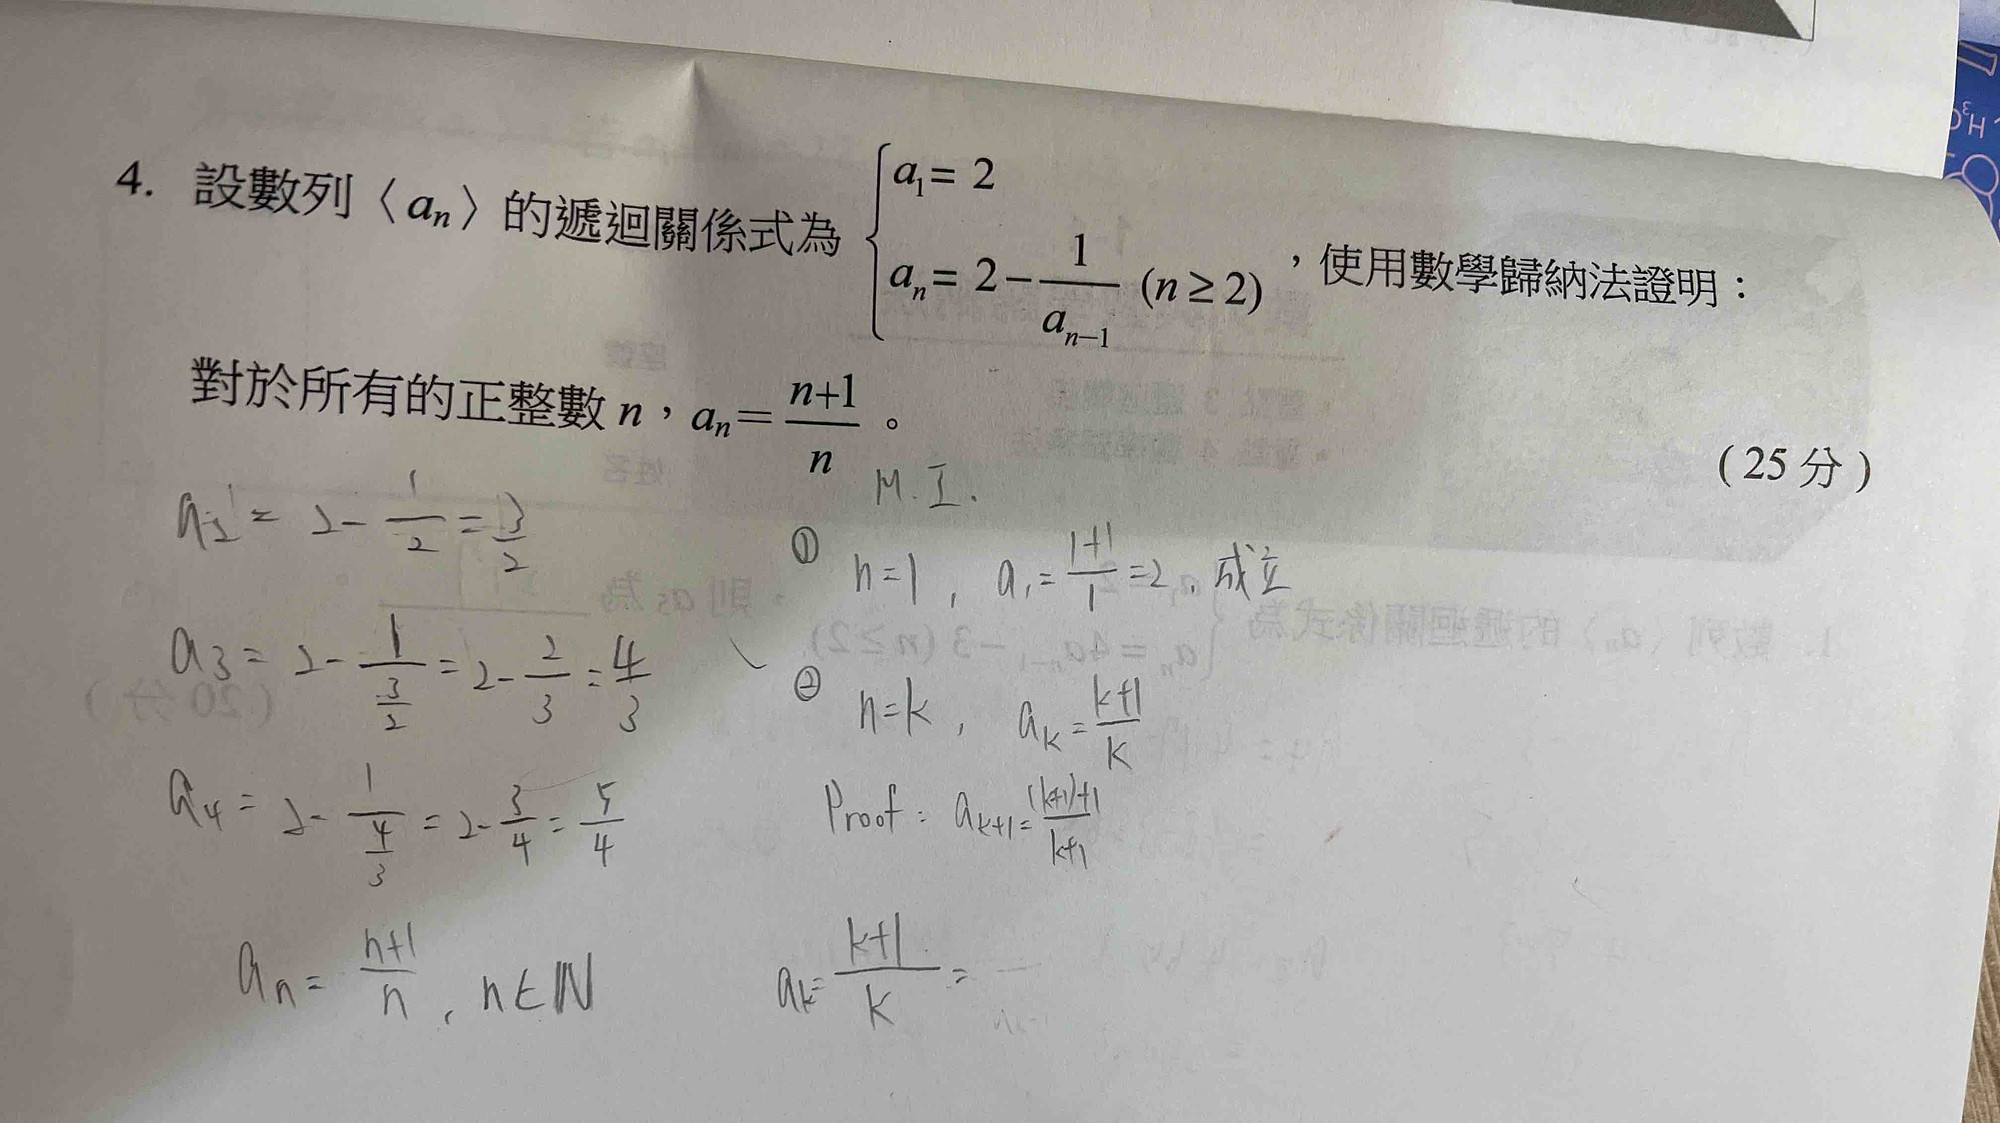 4. 設數列〈aₙ〉的遞迴關係式為 { a₁= 2
aₙ= 2 - 1/aₙ₋₁ (n ≥ 2) ，使用數學歸納法證明：
對於所有的正整數 n，aₙ= (n+1)/n 。
(25 分)
a₂ = 2 - 1/2 = 3/2
a₃ = 2 - 1/(3/2) = 2 - 2/3 = 4/3
a₄ = 2 - 1/(4/3) = 2 - 3/4 = 5/4
aₙ = (n+1)/n , n∈ℕ
M.I.
① n=1 , a₁ = (1+1)/1 = 2. 成立
② n=k , aₖ = (k+1)/k
Proof: aₖ₊₁ = ((k+1)+1)/(k+1)
aₖ = (k+1)/k =